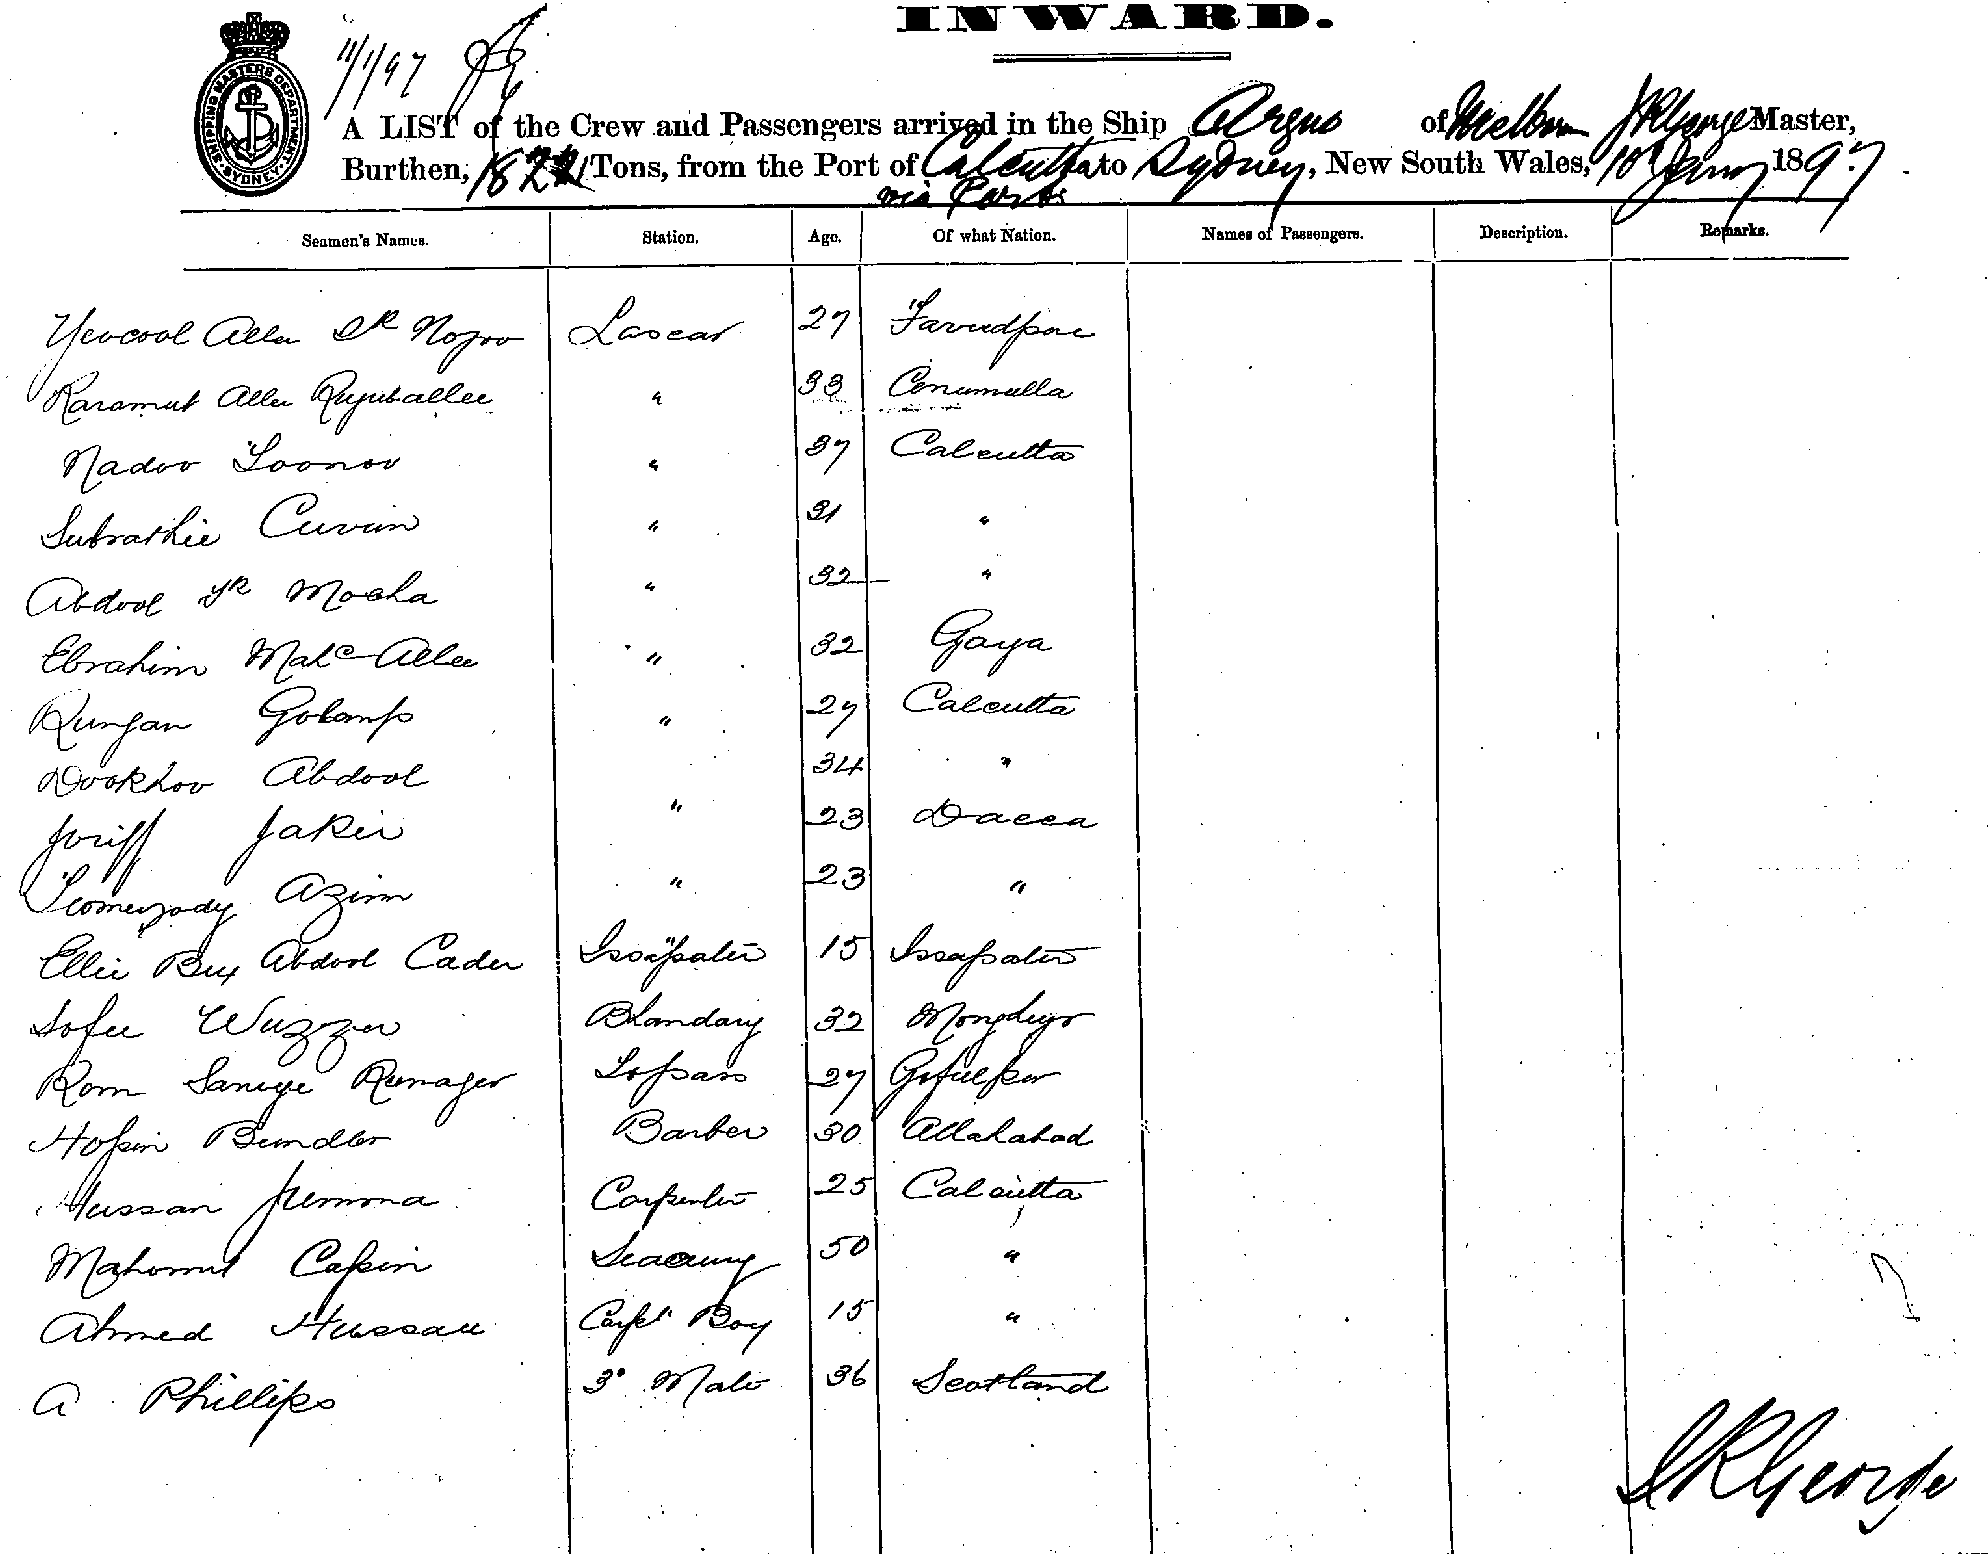 INWARD.
11/1/97
SHIPPING MASTERS DEPARTMENT SYDNEY
A LIST of the Crew and Passengers arrived in the Ship Argus of Melbourne J R George Master,
Burthen, Tons, from the Port of Calcutta to Sydney, New South Wales, 10th Jany 1897
via Ports
Seamen's Names. Station. Age. Of what Nation. Names of Passengers. Description. Remarks.
Yeucool Allee Lascar 27
Karamut Allee Rujuballee " 33
Nadoo Toonoo " 37 Calcutta
Subrathie " 31 "
Abdool Mocha " 32 "
Ebrahim Allee " 32 Gaya
Rungan " 27 Calcutta
Dookhoo Abdool 34 "
Joriff Jakir " 23 Dacca
Azim " 23 "
Ellie Bux Abdool Cader 15
Sofee Wuzzer Bhandary 32 Monghyr
Rom Ramager Topass 27
Hossin Barber 30 Allahabad
Hussan Jumma Carpenter 25 Calcutta
Mahomed Cassin Seacunny 50 "
Ahmed Hussan Carpt Boy 15 "
A Phillips 3d Mate 36 Scotland
J R George